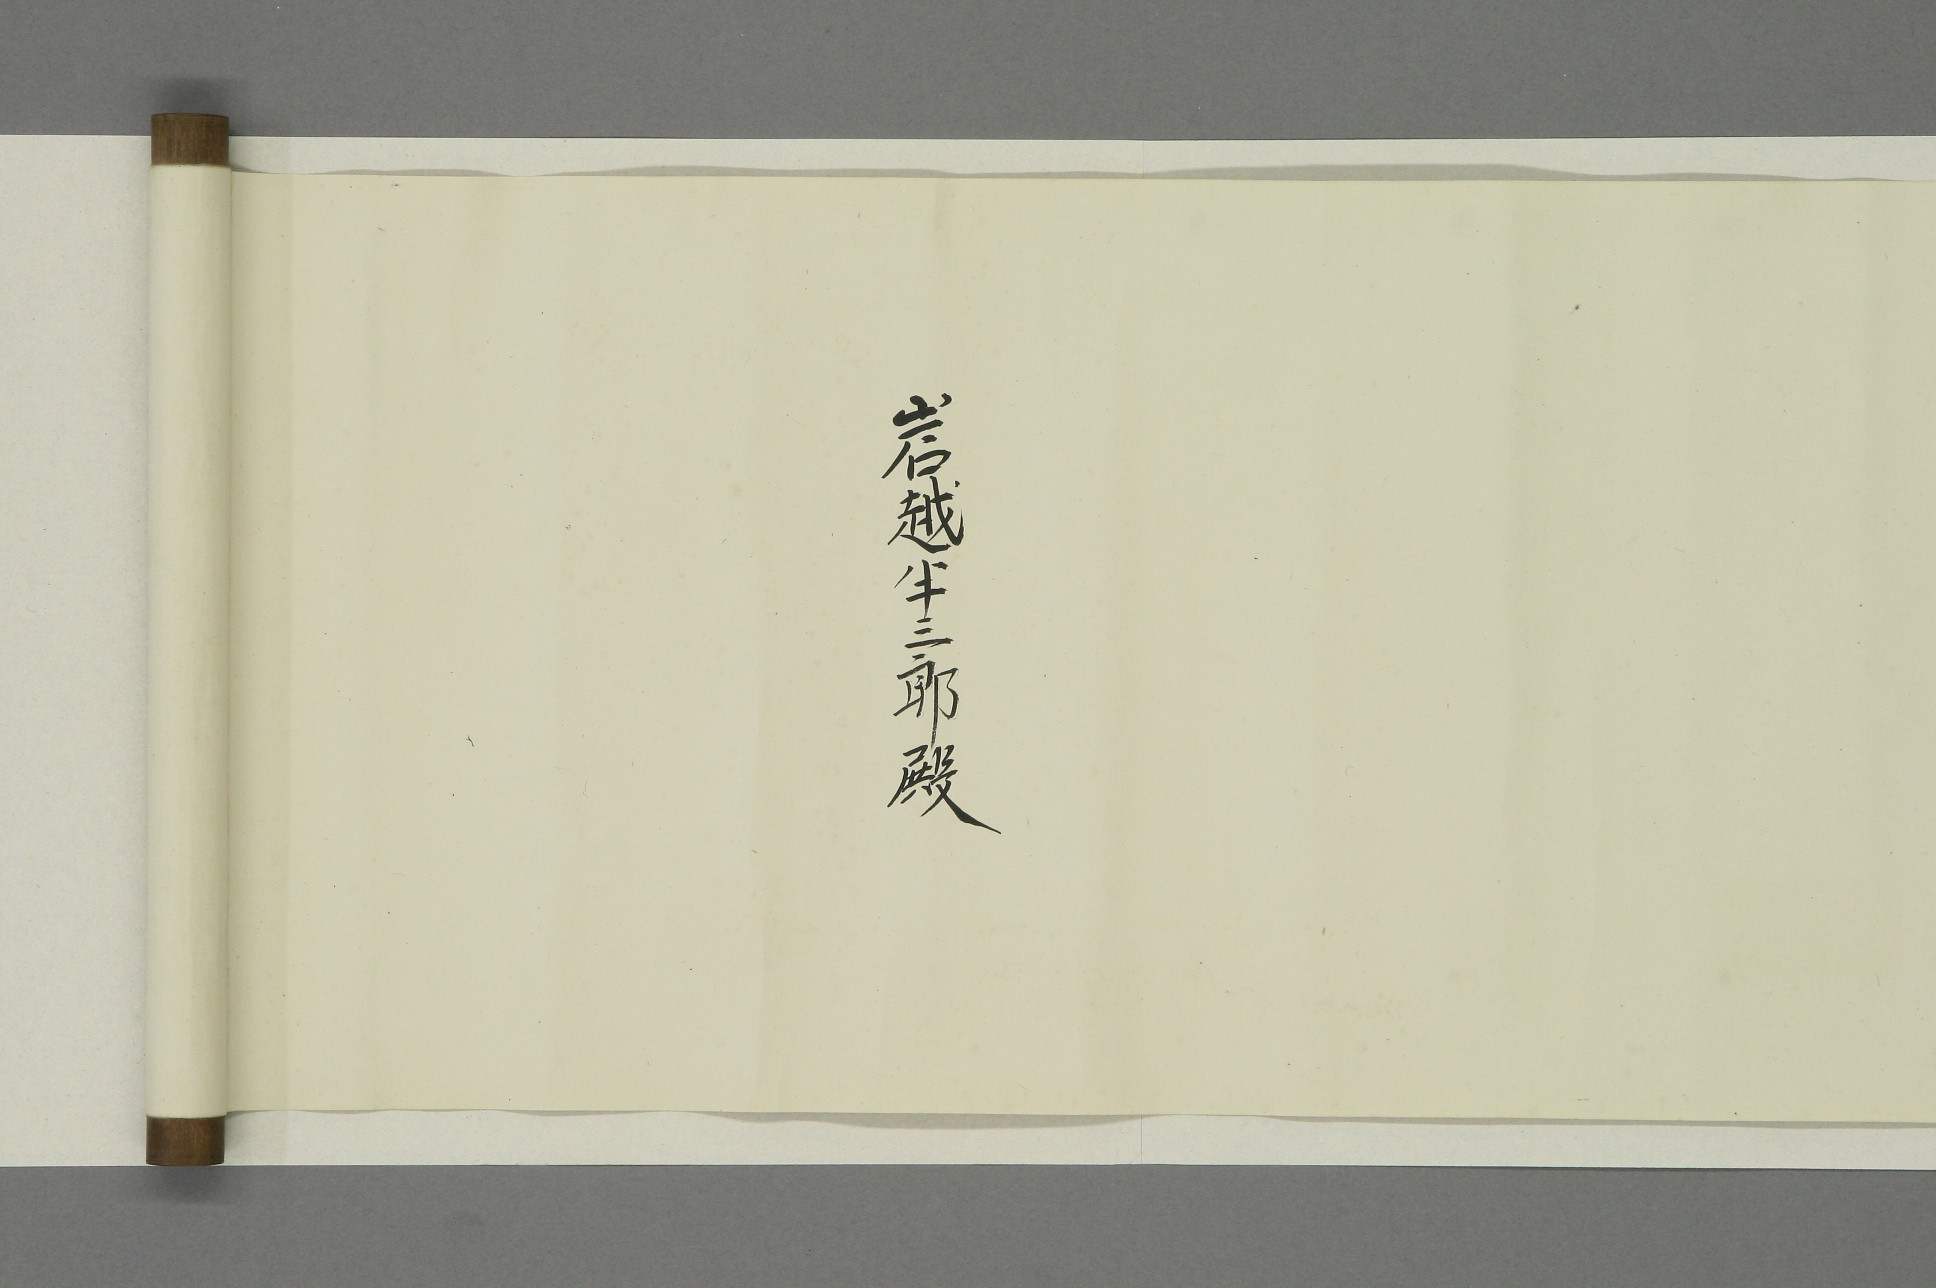 岩越半三郎殿